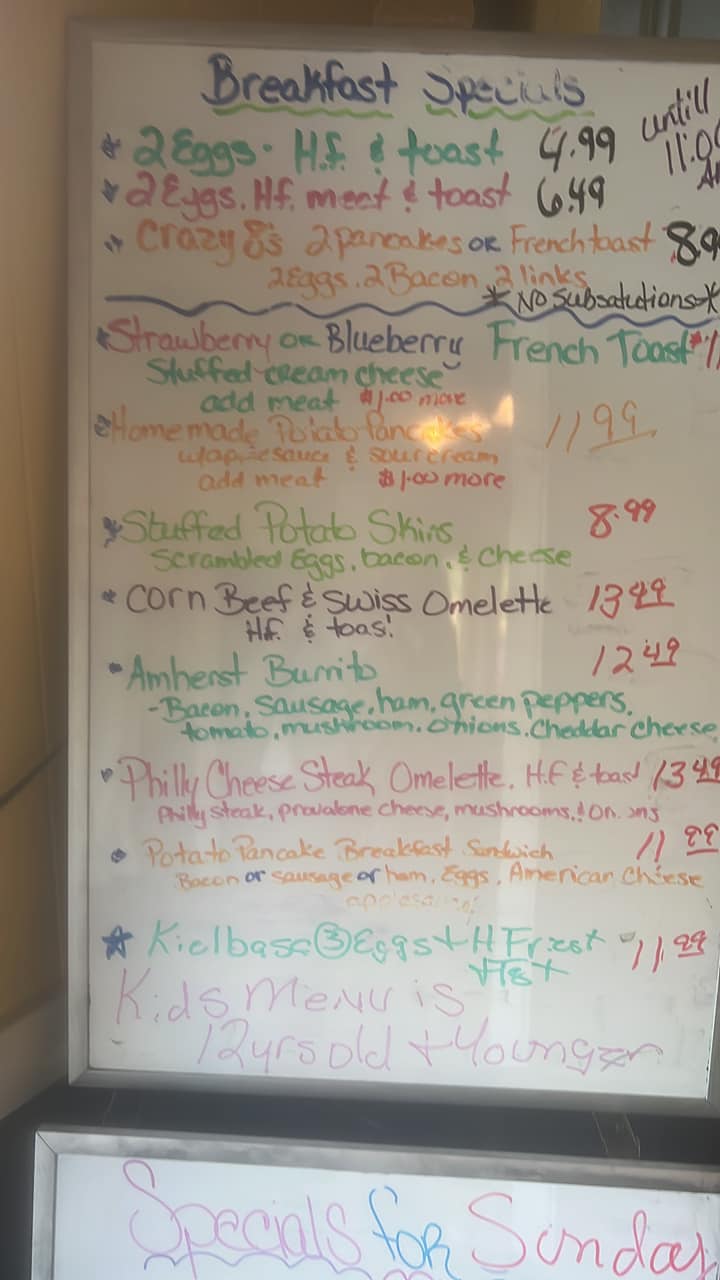 Breakfast Specials
untill
2 Eggs. H.f. & toast 4.99
11:0
2 Eggs. Hf. meat & toast 6.49
Crazy 8's 2 pancakes OR French toast 8.9
2 Eggs. 2 Bacon 2 links
*NO Subsatutions*
Strawberry OR Blueberry French Toast
Stuffed cream cheese
add meat $1.00 more
Homemade Potato Pancakes 11 99
w/applesauce & sour cream
add meat $1.00 more
Stuffed Potato Skins 8.99
Scrambled Eggs, bacon, & cheese
Corn Beef & Swiss Omelette 13 49
Hf. & toas!
Amherst Burrito 12 49
-Bacon, Sausage, ham, green peppers,
tomato, mushroom, onions, Cheddar cheese
Philly Cheese Steak Omelette, H.F & toast 13 49
Philly steak, provalone cheese, mushrooms, & Onions
Potato Pancake Breakfast Sandwich 11 99
Bacon or sausage or ham, Eggs, American Cheese
Kielbasa 3 Eggs + H Fries + 11 99
TST
Kids Menu is
12 yrs old + Younger
Specials for Sunday